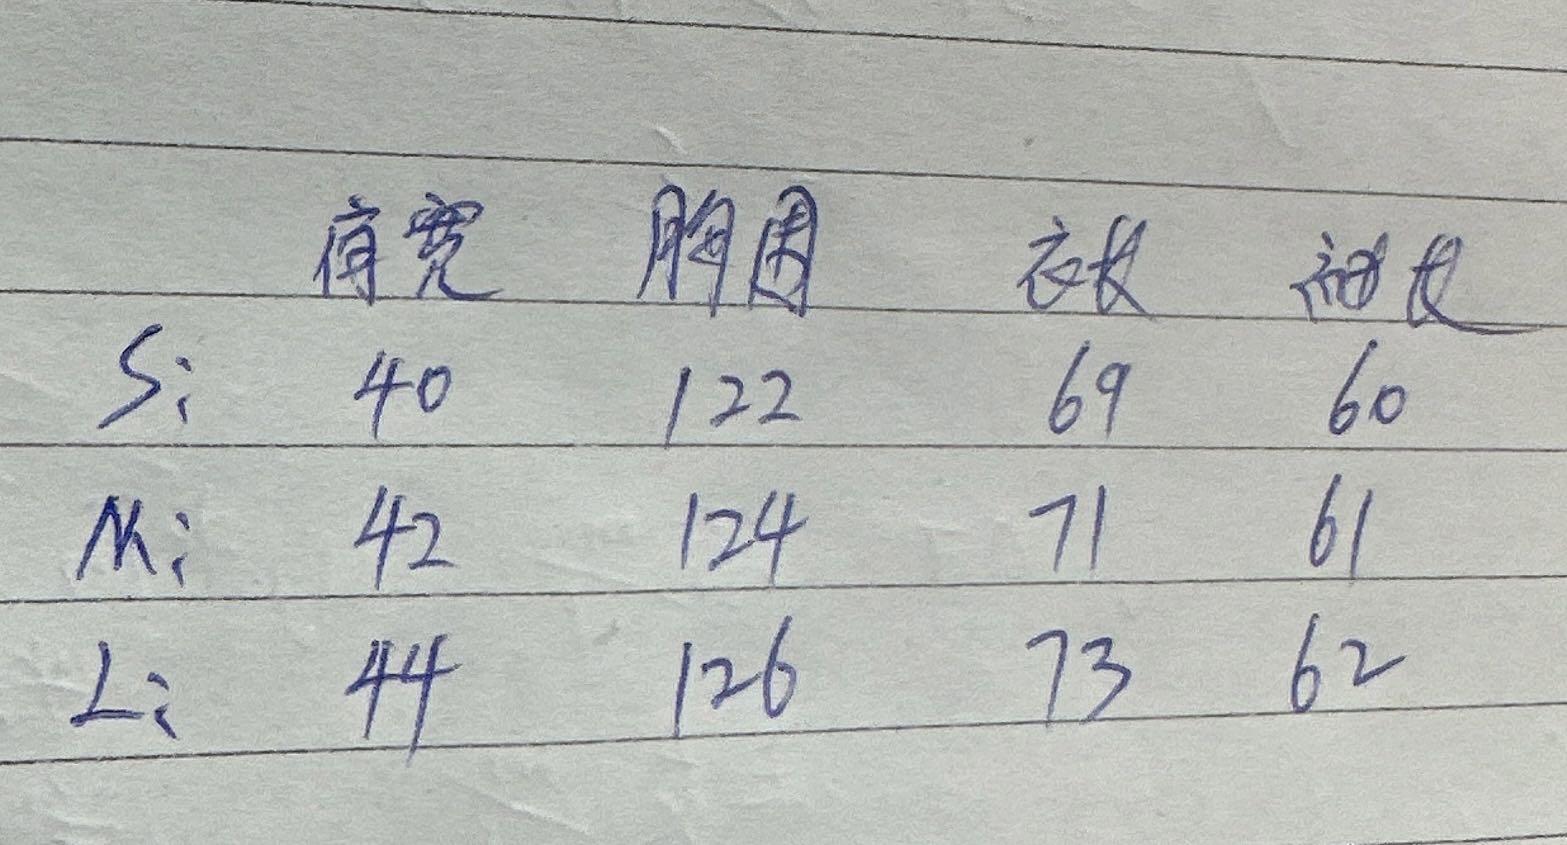 肩宽 胸围 衣长 袖长
S: 40 122 69 60
M: 42 124 71 61
L: 44 126 73 62